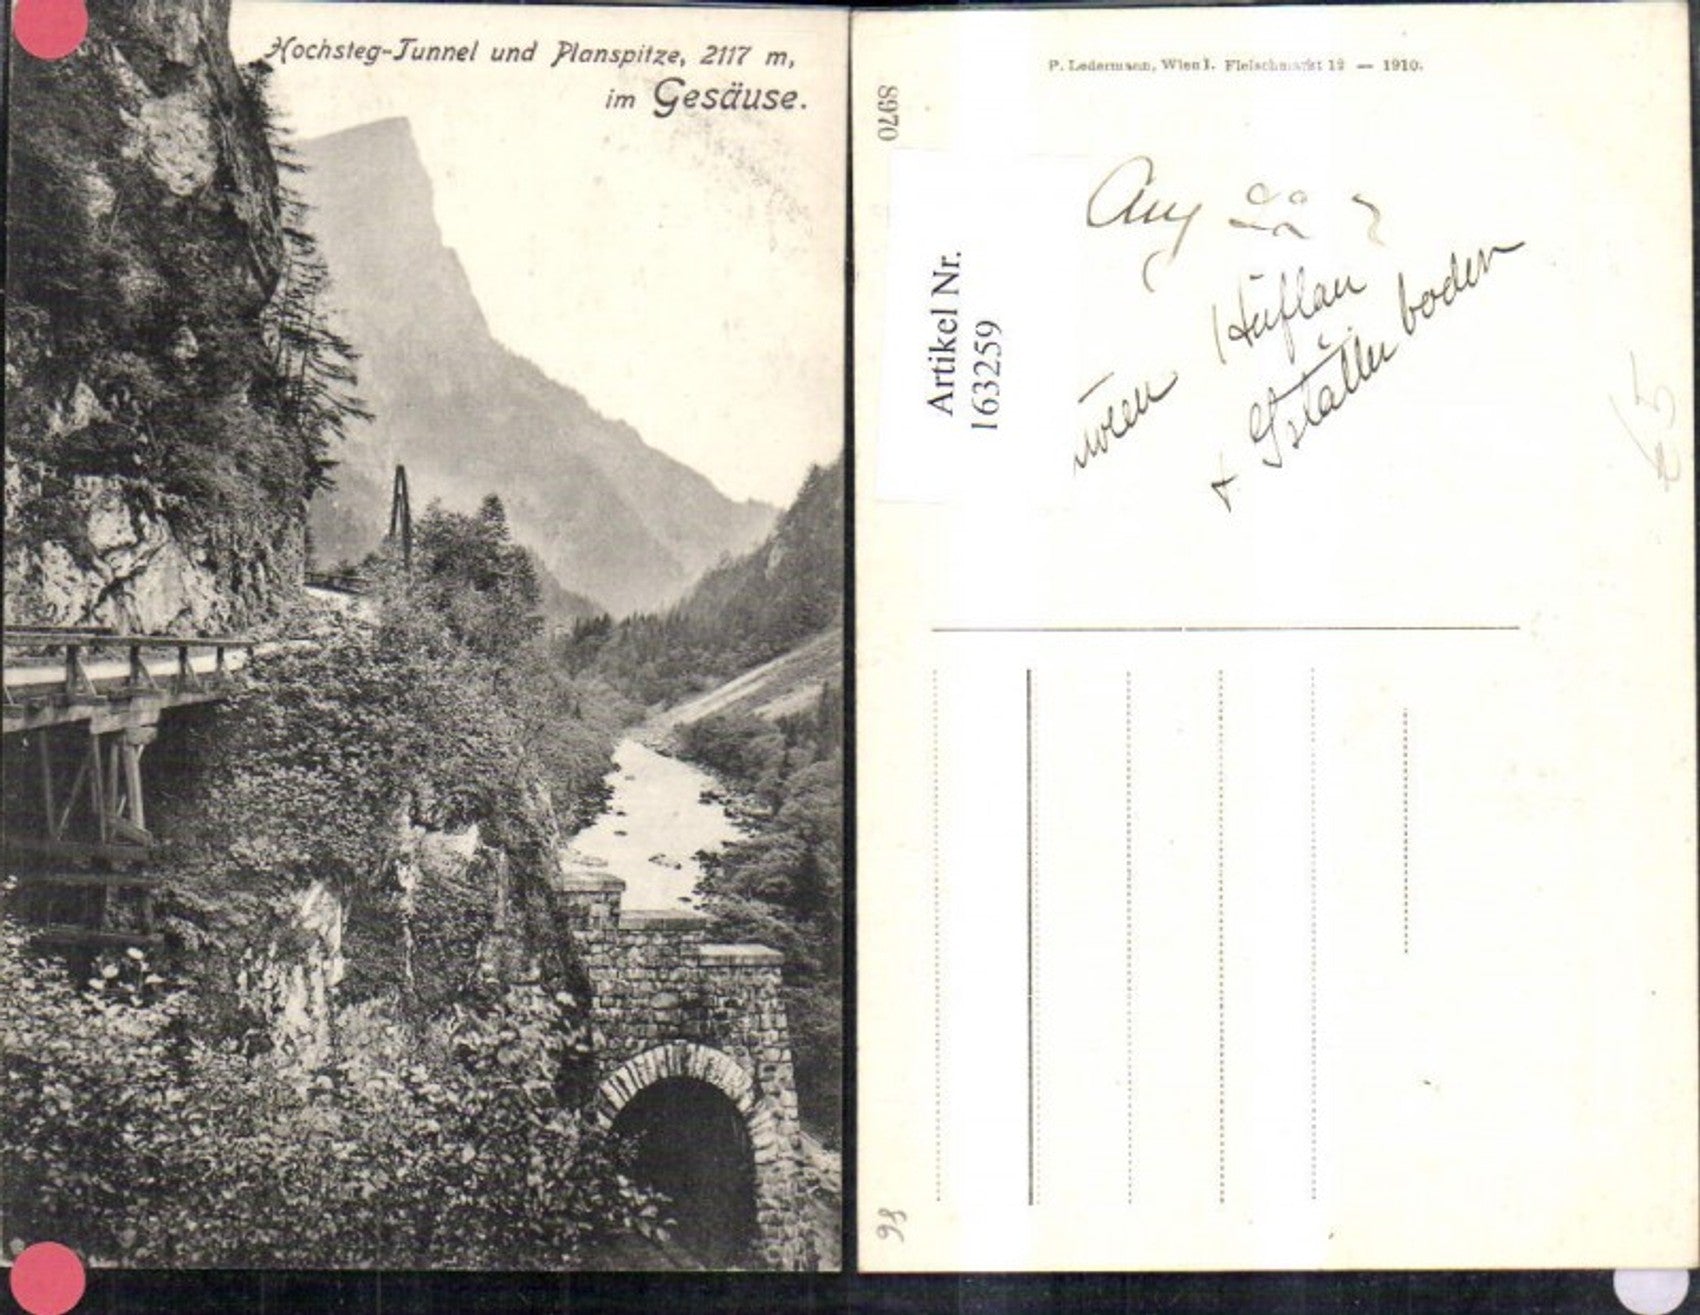 Hochsteg-Tunnel und Planspitze, 2117 m,
im Gesäuse.
P. Ledermann, Wien I. Fleischmarkt 12 — 1910.
8970
Artikel Nr.
163259
Hieflau
+ Gstatterboden
98